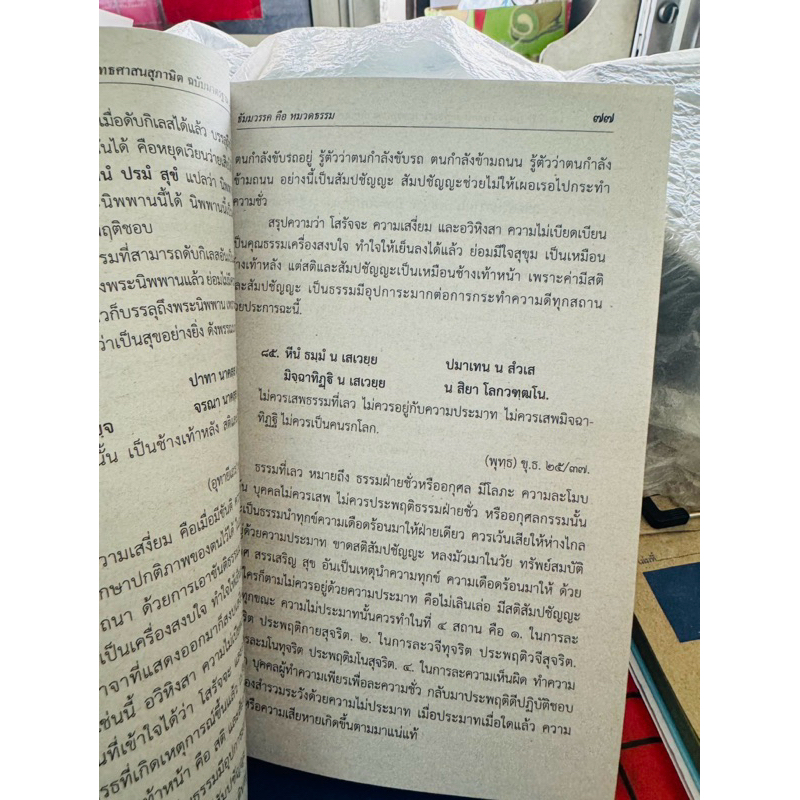 ทธศาสนสุภาษิต
เมื่อดับกิเลสได้แล้ว
นได้ คือหยุดเวียนว่าย
นํ ปรมํ สุขํ แปลว่า
ะนิพพานนี้ได้
ฤติชอบ
รมที่สามารถดับกิเลส
งพระนิพพานแล้ว
วก็บรรลุถึงพระนิพพาน
ว่าเป็นสุขอย่างยิ่ง
ปาทา
จรณา
นั้น เป็นช้างเท้าหลัง
วามเสงี่ยม คือเมื่อมีขันติ
กษาปกติภาพของตนไว้ได้
ถนา ด้วยการเอาขันติธรรม
เป็นเครื่องสงบใจ
าจาที่แสดงออกมาก็สงบ
ช่นนี้ อวิหิงสา
นที่เข้าใจได้ว่า โสรัจจะ
รธที่เกิดเหตุการณ์ขึ้นแล้ว
ท้าหน้า คือ สติ และ
ธัมมวรรค คือ หมวดธรรม ๗๗
ตนกำลังขับรถอยู่ รู้ตัวว่าตนกำลังขับรถ ตนกำลังข้ามถนน รู้ตัวว่าตนกำลัง
ข้ามถนน อย่างนี้เป็นสัมปชัญญะ สัมปชัญญะช่วยไม่ให้เผลอเรอไปกระทำ
ความชั่ว
สรุปความว่า โสรัจจะ ความเสงี่ยม และอวิหิงสา ความไม่เบียดเบียน
เป็นคุณธรรมเครื่องสงบใจ ทำใจให้เย็นลงได้แล้ว ย่อมมีใจสุขุม เป็นเหมือน
ช้างเท้าหลัง แต่สติและสัมปชัญญะเป็นเหมือนช้างเท้าหน้า เพราะค่ามีสติ
ละสัมปชัญญะ เป็นธรรมมีอุปการะมากต่อการกระทำความดีทุกสถาน
วยประการฉะนี้.
๘๕. หีนํ ธมฺมํ น เสเวยฺย ปมาเทน น สํวเส
มิจฺฉาทิฏฺฐึ น เสเวยฺย น สิยา โลกวฑฺฒโน.
ไม่ควรเสพธรรมที่เลว ไม่ควรอยู่กับความประมาท ไม่ควรเสพมิจฉา-
ทิฏฐิ ไม่ควรเป็นคนรกโลก.
(พุทธ) ขุ.ธ. ๒๕/๓๗.
ธรรมที่เลว หมายถึง ธรรมฝ่ายชั่วหรืออกุศล มีโลภะ ความละโมบ
น บุคคลไม่ควรเสพ ไม่ควรประพฤติธรรมฝ่ายชั่ว หรืออกุศลกรรมนั้น
ะเป็นธรรมนำทุกข์ความเดือดร้อนมาให้ฝ่ายเดียว ควรเว้นเสียให้ห่างไกล
ด้วยความประมาท ขาดสติสัมปชัญญะ หลงมัวเมาในวัย ทรัพย์สมบัติ
ศ สรรเสริญ สุข อันเป็นเหตุนำความทุกข์ ความเดือดร้อนมาให้ ด้วย
ใครก็ตามไม่ควรอยู่ด้วยความประมาท คือไม่เลินเล่อ มีสติสัมปชัญญะ
ทุกขณะ ความไม่ประมาทนั้นควรทำในที่ ๔ สถาน คือ ๑. ในการละ
ริต ประพฤติกายสุจริต. ๒. ในการละวจีทุจริต ประพฤติวจีสุจริต.
ละมโนทุจริต ประพฤติมโนสุจริต. ๔. ในการละความเห็นผิด ทำความ
บุคคลผู้ทำความเพียรเพื่อละความชั่ว กลับมาประพฤติดีปฏิบัติชอบ
องสำรวมระวังด้วยความไม่ประมาท เมื่อประมาทเมื่อใดแล้ว ความ
หรือความเสียหายเกิดขึ้นตามมาแน่แท้